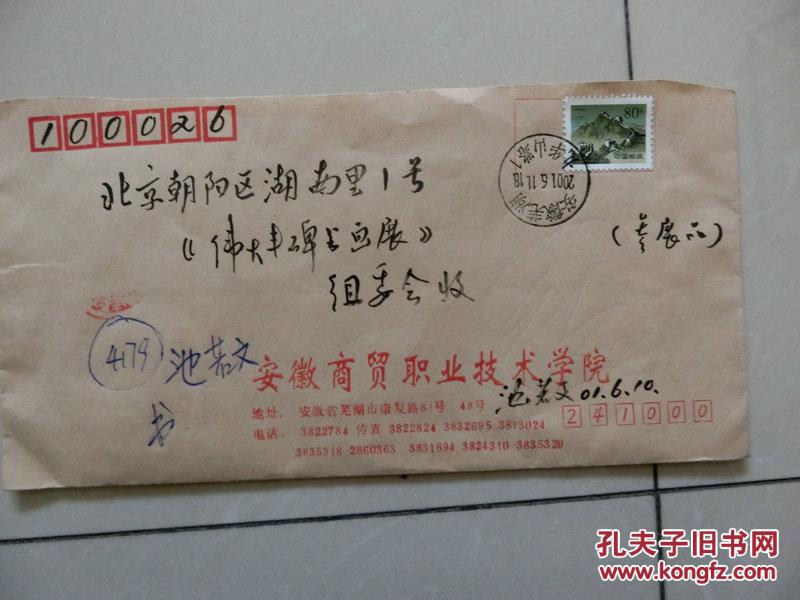 100026
80分
中国邮政
安徽芜湖
2001.6.11.18
北京朝阳区湖南里1号
《伟大丰碑书画展》
(参展品)
组委会收
4179 池若文
书
安徽商贸职业技术学院
池若文 01.6.10.
地址: 安徽省芜湖市康复路87号 48号
241000
电话: 3822784 传真 3822824 3832695 3813024
3835318 2860363 3831694 3824310 3835320
孔夫子旧书网
www.kongfz.com